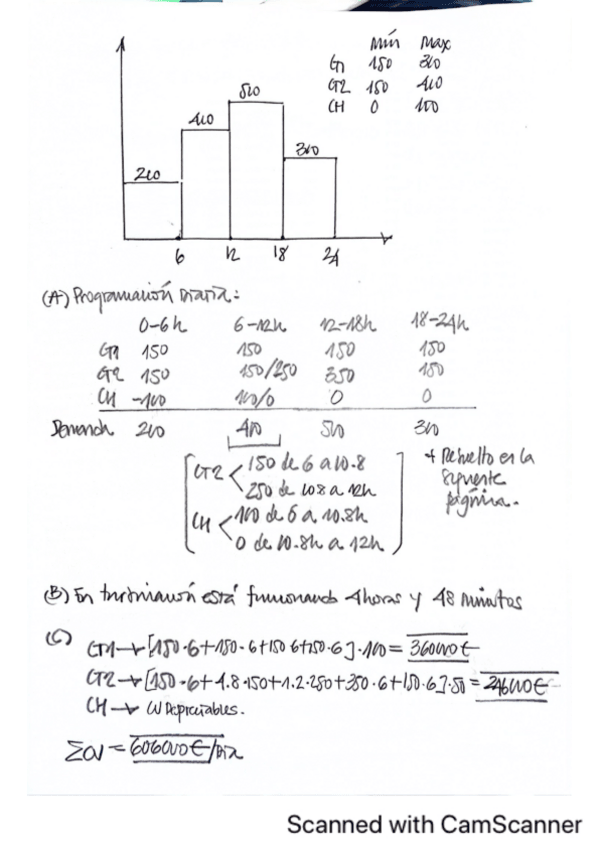 Mín Max
G1 150 300
GT2 150 400
CH 0 100
500
400
300
200
6 12 18 24
(A) Programación Diaria:
0-6h 6-12h 12-18h 18-24h
GT1 150 150 150 150
GT2 150 150/250 350 150
CH -100 100/0 0 0
Demanda 200 400 500 300
GT2 150 de 6 a 10.8
250 de 10.8 a 12h
CH 100 de 6 a 10.8h
0 de 10.8h a 12h
* Resuelto en la
siguiente
página.
(B) En turbinación está funcionando 4 horas y 48 minutos
(C) GT1→[150·6+150·6+150·6+150·6]·100= 360000€
GT2→[150·6+4.8·150+1.2·250+350·6+150·6]·50 = 246000€
CH→ CV Depreciables.
ΣCV = 606000€/Día
Scanned with CamScanner